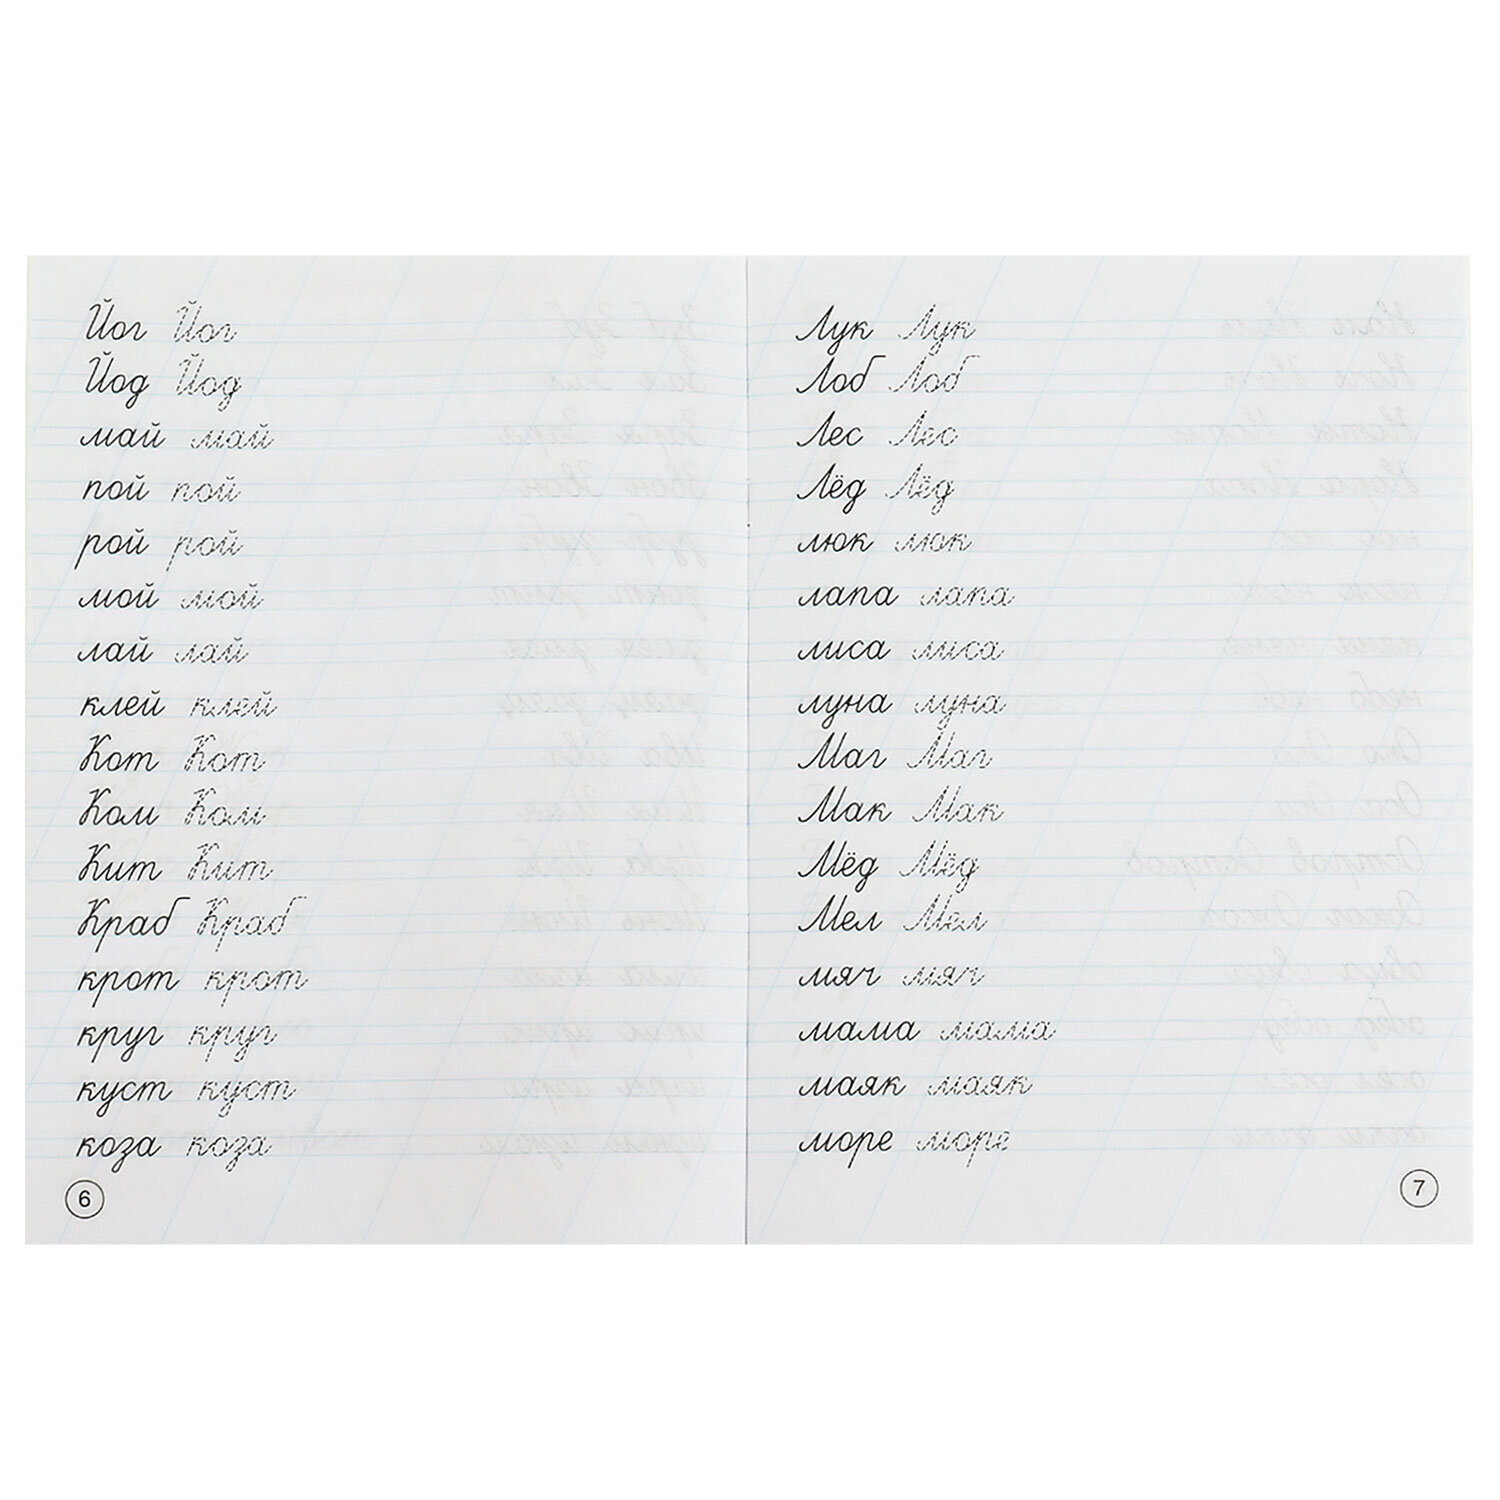 Йог Йог
Йод Йод
май май
пой пой
рой рой
мой мой
лай лай
клей клей
Кот Кот
Ком Ком
Кит Кит
Краб Краб
крот крот
круг круг
куст куст
коза коза
6
Лук Лук
Лоб Лоб
Лес Лес
Лёд Лёд
люк люк
лапа лапа
лиса лиса
луна луна
Маг Маг
Мак Мак
Мёд Мёд
Мел Мел
мяч мяч
мама мама
маяк маяк
море море
7